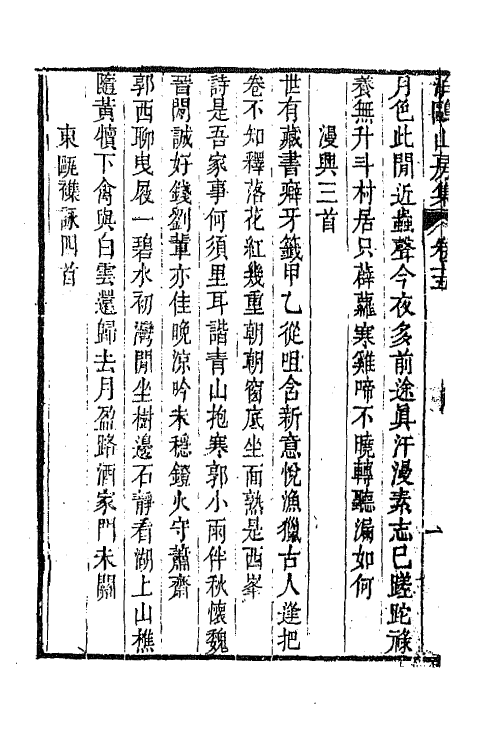 月色此間近蟲聲今夜多前途眞汗漫素志已蹉跎祿
養無升斗村居只薜蘿寒雞啼不曉轉聽漏如何
漫興三首
世有藏書癖牙籤甲乙從咀含新意悅漁獵古人逢把
卷不知釋落花紅幾重朝朝窗底坐面熟是西峯
詩是吾家事何須里耳諧青山抱寒郭小雨伴秋懷魏
晉閒誠好錢劉輩亦佳晚涼吟未穩鐙火守蕭齋
郭西聊曳屐一碧水初灣閒坐樹邊石靜看湖上山樵
隨黃犢下禽與白雲還歸去月盈路酒家門未關
東甌襍詠四首
山房集
卷十五
一